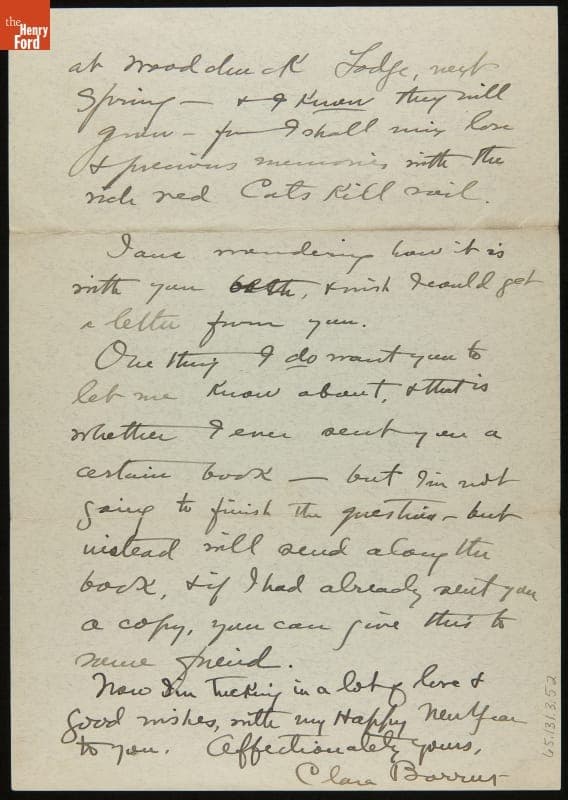 the
Henry
Ford
at Woodchuck Lodge, next
Spring – & I know they will
grow – for I shall mix love
& precious memories with the
rich red Catskill soil.
I am wondering how it is
with you both, & wish I could get
a letter from you.
One thing I do want you to
let me know about, & that is
whether I ever sent you a
certain book – but I'm not
going to finish the question – but
instead will send along the
book, & if I had already sent you
a copy, you can give this to
some friend.
Now I'm tucking in a lot of love &
good wishes, with my Happy New Year
to you. Affectionately yours,
Clara Barrus
65.131.3.52